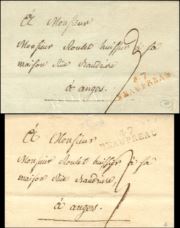 À Monsieur
Monsieur Roulet huissier à sa
maison Rue
à angers
47
BEAUPREAU
À Monsieur
Monsieur Roulet huissier à sa
maison Rue
à angers
47
BEAUPREAU